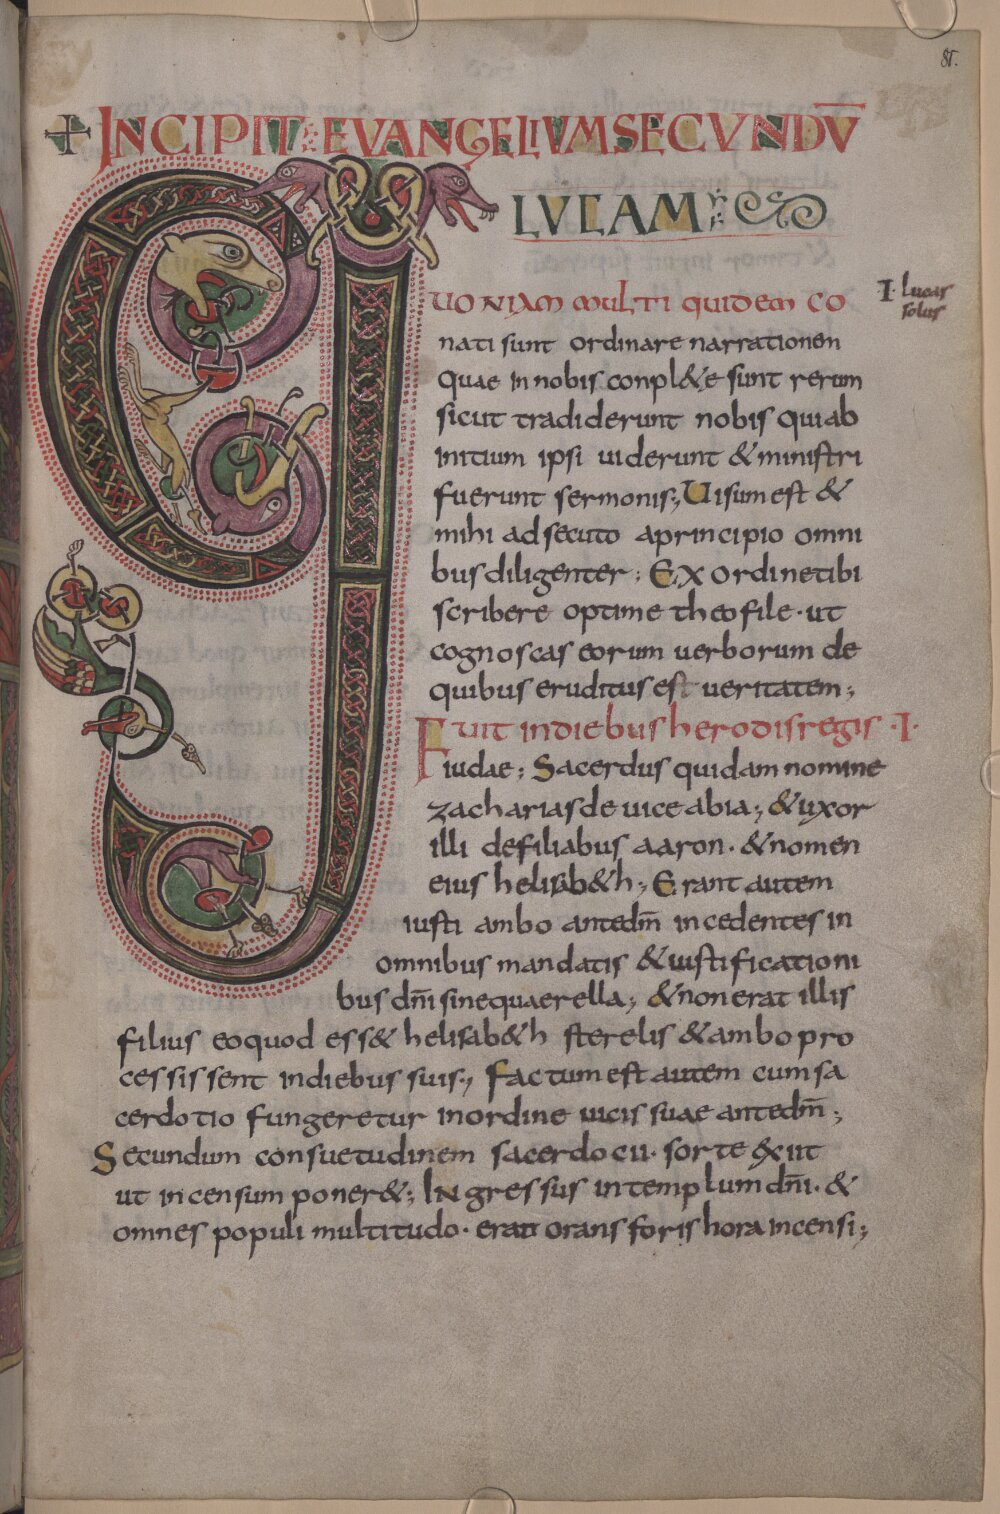 81.
+ INCIPIT EVANGELIUM SECUNDŪ
LUCAM
QUONIAM multi quidem co
I lucas
solus
nati sunt ordinare narrationem
quae in nobis conpl&e sunt rerum
sicut tradiderunt nobis qui ab
initium ipsi uiderunt & ministri
fuerunt sermonis; Uisum est &
mihi adsecuto a principio omni
bus diligenter; Ex ordine tibi
scribere optime theofile· ut
cognoscas eorum uerborum de
quibus eruditus est ueritatem;
Fuit in diebus herodis regis ·I·
iudae; Sacerdus quidam nomine
zacharias de uice abia; & uxor
illi de filiabus aaron· & nomen
eius helisab&h; Erant autem
iusti ambo ante dm̄ incedentes in
omnibus mandatis & iustificationi
bus dnī sine quaerella; & non erat illis
filius eo quod ess& helisab&h sterelis & ambo pro
cessissent in diebus suis; Factum est autem cum sa
cerdotio fungeretur in ordine uicis suae ante dm̄;
Secundum consuetudinem sacerdocii· sorte exiit
ut incensum poner&; INgressus in templum dnī· &
omnes populi multitudo· erat orans foris hora incensi;